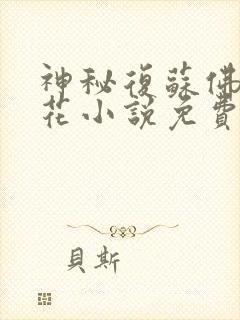 神秘復蘇佛
花小說免費
貝斯